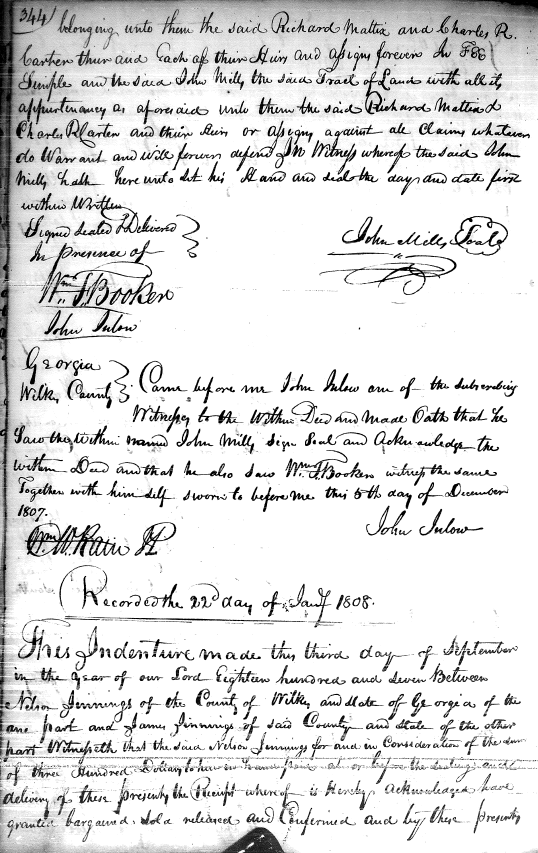 344
belonging unto them the said Richard Mattix and Charles R.
Carter thier and Each of thier Heirs and assigns forever In Fee
Simple and the said John Mills the said Tract of Land with all its
appurtenancys as aforesaid unto them the said Richard Mattix &
Charles R Carter and thier Heirs or assigns against all Claims whatever
do Warrant and will forever defend In Witness whereof the said John
Mills hath here unto Set his Hand and seal the day and date first
within Written
Signed Sealed & Delivered
In presence of
John Mills Seal
Wm. S. Booker
John Inlow
Georgia
Wilks County
Came before me John Inlow one of the subscribing
Witnesses to the Within Deed and Made Oath that he
Saw the within named John Mills Sign Seal and Acknowledge the
within Deed and that he also saw Wm. S. Booker witness the same
Together with him self sworn to before me this 5th day of December
1807.
John Inlow
Recorded the 22d day of Jany 1808.
This Indenture made this third day of September
in the year of our Lord Eighteen hundred and seven Between
Nelson Jennings of the County of Wilks and State of Georgia of the
one part and James Jennings of said County and State of the other
part Witnesseth that the said Nelson Jennings for and in Consideration of the sum
of three Hundred Dollars to him in hand paid at or before the sealing and
delivery of these presents the Receipt whereof is Hereby Acknowledged have
granted bargained sold released and Confirmed and by these presents